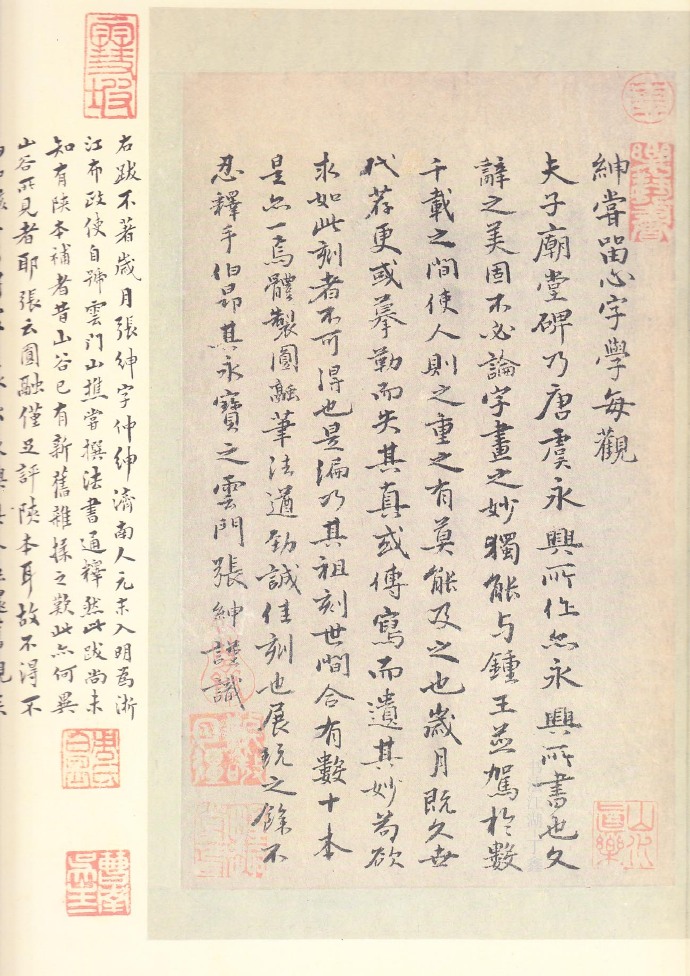 紳嘗留心字學每觀
夫子廟堂碑乃唐虞永興所作亦永興所書也文
辭之美固不必論字畫之妙獨能与鍾王並駕於數
千載之間使人則之重之有莫能及之也歲月既久世
代荐更或摹勒而失其真或傳寫而遺其妙苟欲
求如此刻者不可得也是編乃其祖刻世間合有數十本
是亦一焉體製圓融筆法遒勁誠佳刻也展玩之餘不
忍釋手伯昂其永寶之雲門張紳謹識
山水真樂
雪坡
右跋不著歲月張紳字仲紳濟南人元末入明為浙
江布政使自號雲門山樵嘗撰法書通釋然此跋尚未
知有陝本補者昔山谷已有新舊雜揉之歎此亦何異
山谷所見者耶張云圓融僅足評陝本耳故不得不